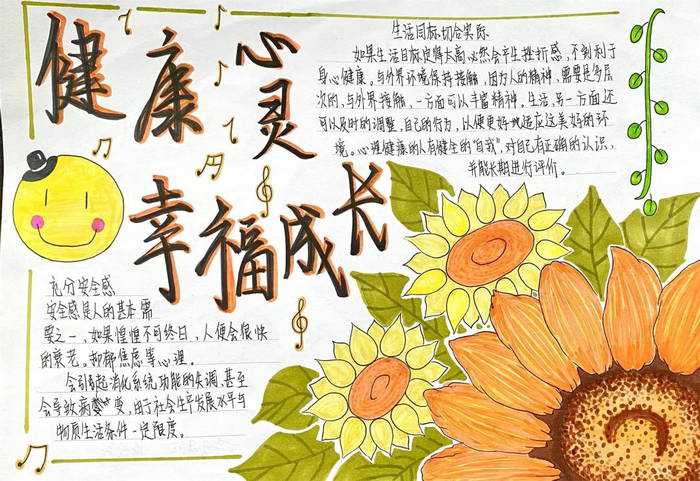 健康心灵
幸福成长
生活目标切合实际
如果生活目标定得太高,必然会产生挫折感,不利利于
身心健康。与外界环境保持接触,因为人的精神,需要是多层
次的,与外界接触,一方面可以丰富精神,生活,另一方面还
可以及时的调整,自己的行为,以便更好地适应这美好的环
境。心理健康的人有健全的“自我”,对自己有正确的认识,
并能长期进行评价。
充分安全感
安全感是人的基本需
要之一,如果惶惶不可终日,人便会很快
的衰老。抑郁焦虑等心理。
会引起消化系统功能的失调,甚至
会导致病变,由于社会生产发展水平与
物质生活条件一定限度。